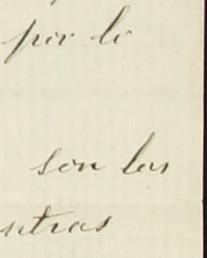 por lo
son las
ntras